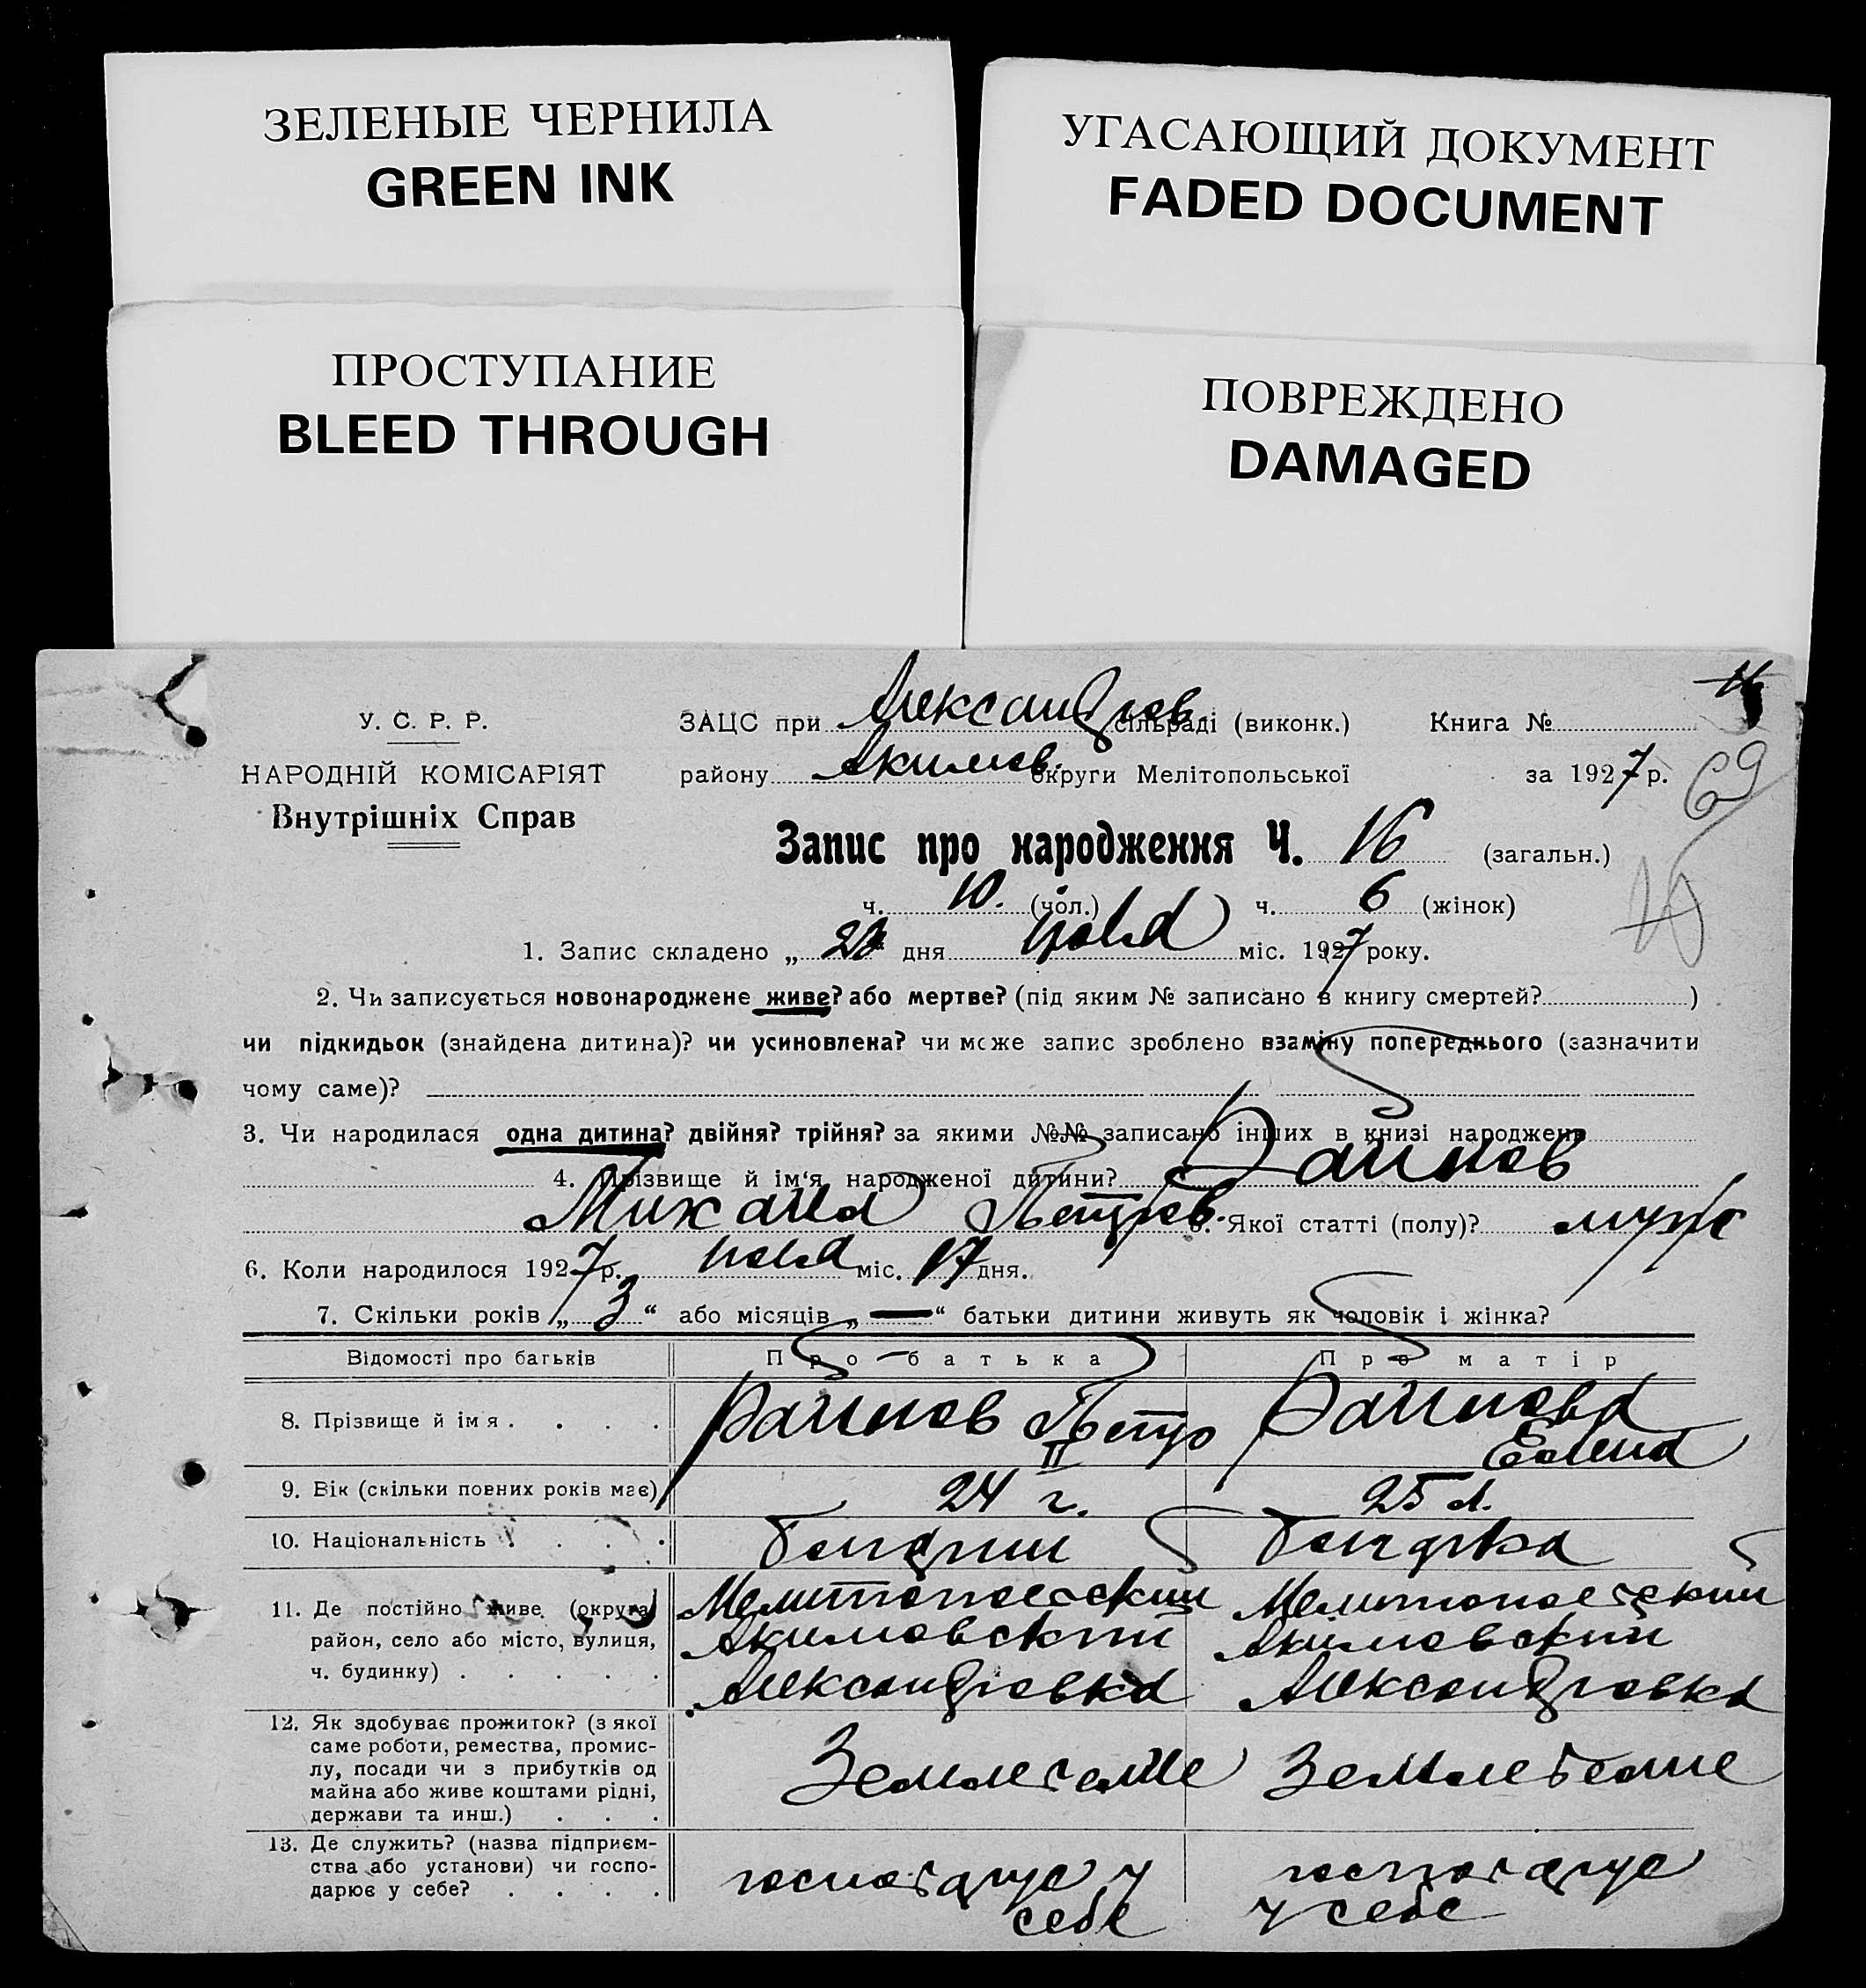 ЗЕЛЕНЫЕ ЧЕРНИЛА
GREEN INK
УГАСАЮЩИЙ ДОКУМЕНТ
FADED DOCUMENT
ПРОСТУПАНИЕ
BLEED THROUGH
ПОВРЕЖДЕНО
DAMAGED
У. С. Р. Р.
НАРОДНІЙ КОМІСАРІЯТ
Внутрішніх Справ
ЗАЦС при Александров. сільраді (виконк.) Книга №
району Акимов. округи Мелітопольської за 1927 р.
69
Запис про народження Ч. 16 (загальн.)
ч. 10. (чол.) ч. 6 (жінок)
1. Запис складено „ “ дня міс. 1927 року.
2. Чи записується новонароджене живе? або мертве? (під яким № записано в книгу смертей? )
чи підкидьок (знайдена дитина)? чи усиновлена? чи може запис зроблено взаміну попереднього (зазначити
чому саме)?
3. Чи народилася одна дитина? двійня? трійня? за якими №№ записано інших в книзі народжень
4. Прізвище й ім‘я народженої дитини?
Петров. 5. Якої статті (полу)? муж
6. Коли народилося 1927 р. міс. 17 дня.
7. Скільки років „ 3 “ або місяців „ — “ батьки дитини живуть як чоловік і жінка?
Відомості про батьків Про батька Про матір
8. Прізвище й імя . . . . Петро
II
9. Вік (скільки повних років має) 24 г. 25 л.
10. Національність . . . . болгарин болгарка
11. Де постійно живе (округа, район, село або місто, вулиця, ч. будинку) . . . . .
Мелитопольский Мелитопольский
Акимовский Акимовский
Александровка Александровка
12. Як здобуває прожиток? (з якої
саме роботи, ремества, промис-
лу, посади чи з прибутків од
майна або живе коштами рідні,
держави та инш.) . . .
13. Де служить? (назва підприєм-
ства або установи) чи госпо-
дарює у себе? . . . .
господарує у господарує
себе у себе